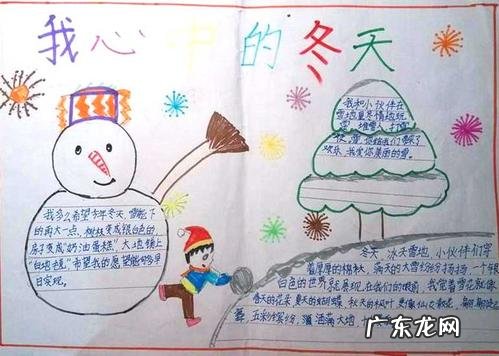 我心中的冬天
我和小伙伴在
雪地里尽情地玩
雪，堆雪人，打雪
欢乐，我爱你美丽的雪。
我多么希望今年冬天，雪能下
的再大一点，树林变成银白色的，
房子变成“奶油蛋糕”大地铺上
“白地毯”希望我的愿望能够早
日实现。
冬天，冰天雪地，小伙伴们穿
着厚厚的棉袄，满天的大雪纷纷扬扬，一个银
白色的世界就展现在我们的眼前，我觉着雪花就像
春天的花朵，夏天的蝴蝶，秋天的枫叶，更像仙女散花，
舞，五彩缤纷，洒满大地，
广东龙网